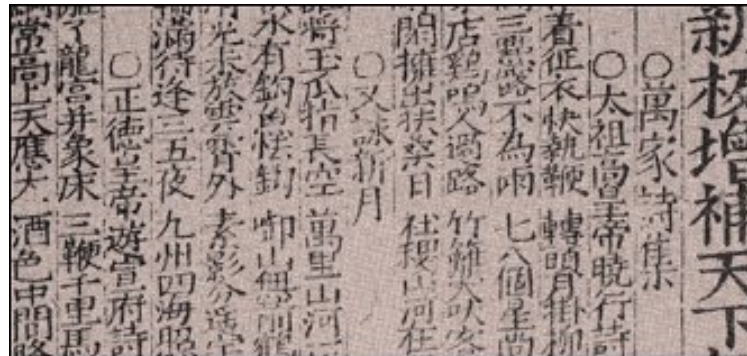 新板增補天下
○萬家詩集
○太祖高皇帝曉行詩
着征衣快執鞭 轉頭月掛柳
三點露不為雨 七八個星尚
店鷄鳴人過路 竹籬犬吠客
閑擁出扶桑日 社稷山河在
○又詠新月
將玉瓜掐長空 萬里山河
水有鈎魚怯釣 啣山無箭鶴
光未放雲霄外 素影分遙
滿待逢三五夜 九州四海照
○正德皇帝遊宣府詩
了龍宮并象床 三鞭千里馬
常高上天應大 酒色中間路